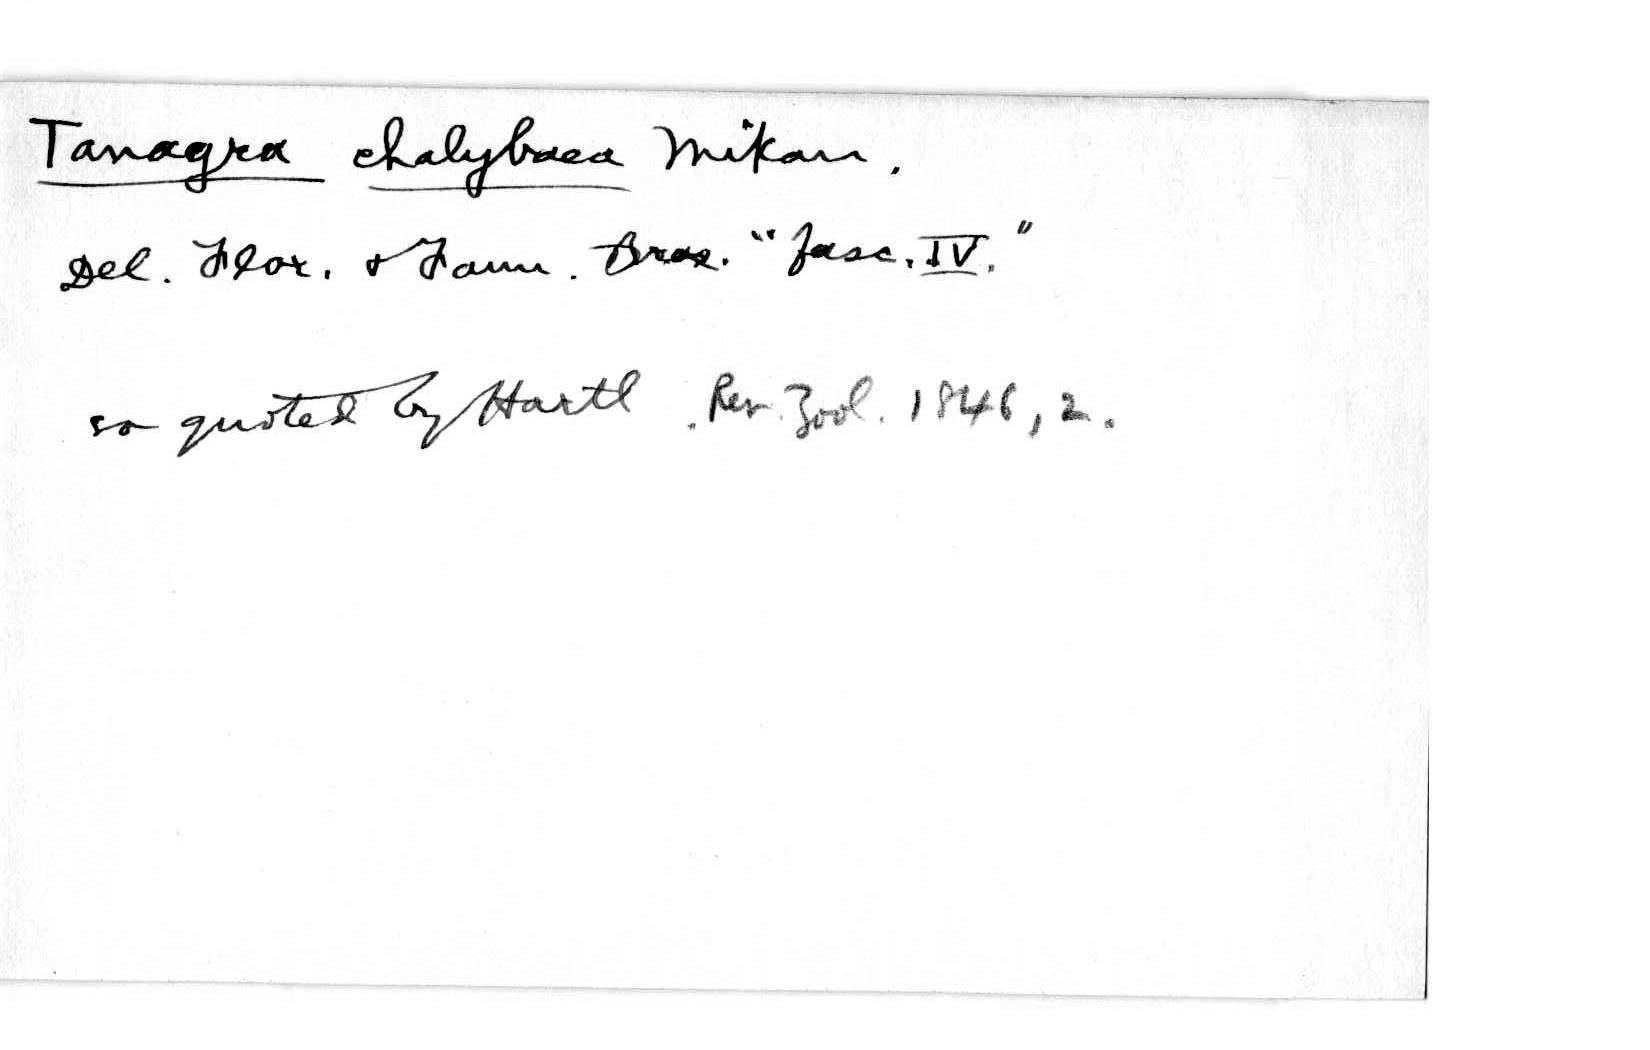 Tanagra chalybaea Mikan.
Del. Flor. & Faun. Bras. "fasc. IV."
so quoted by Hartl. Rev. Zool. 1846, 2.